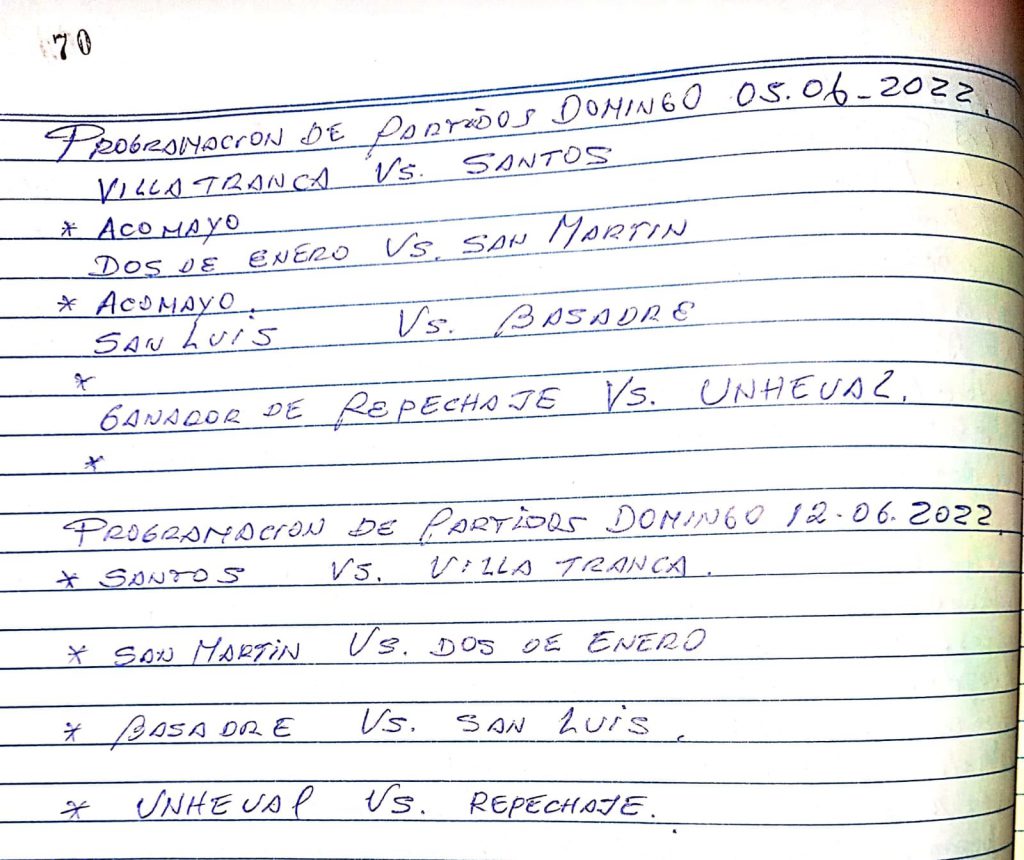 70
PROGRAMACION DE PARTIDOS DOMINGO 05.06-2022.
VILLA TRANCA VS. SANTOS
* ACOMAYO
DOS DE ENERO VS. SAN MARTIN
* ACOMAYO.
SAN LUIS VS. BASADRE
*
GANADOR DE REPECHAJE VS. UNHEVAL.
*
PROGRAMACION DE PARTIDOS DOMINGO 12-06.2022
* SANTOS VS. VILLA TRANCA.
* SAN MARTIN VS. DOS DE ENERO
* BASADRE VS. SAN LUIS.
* UNHEVAL VS. REPECHAJE.